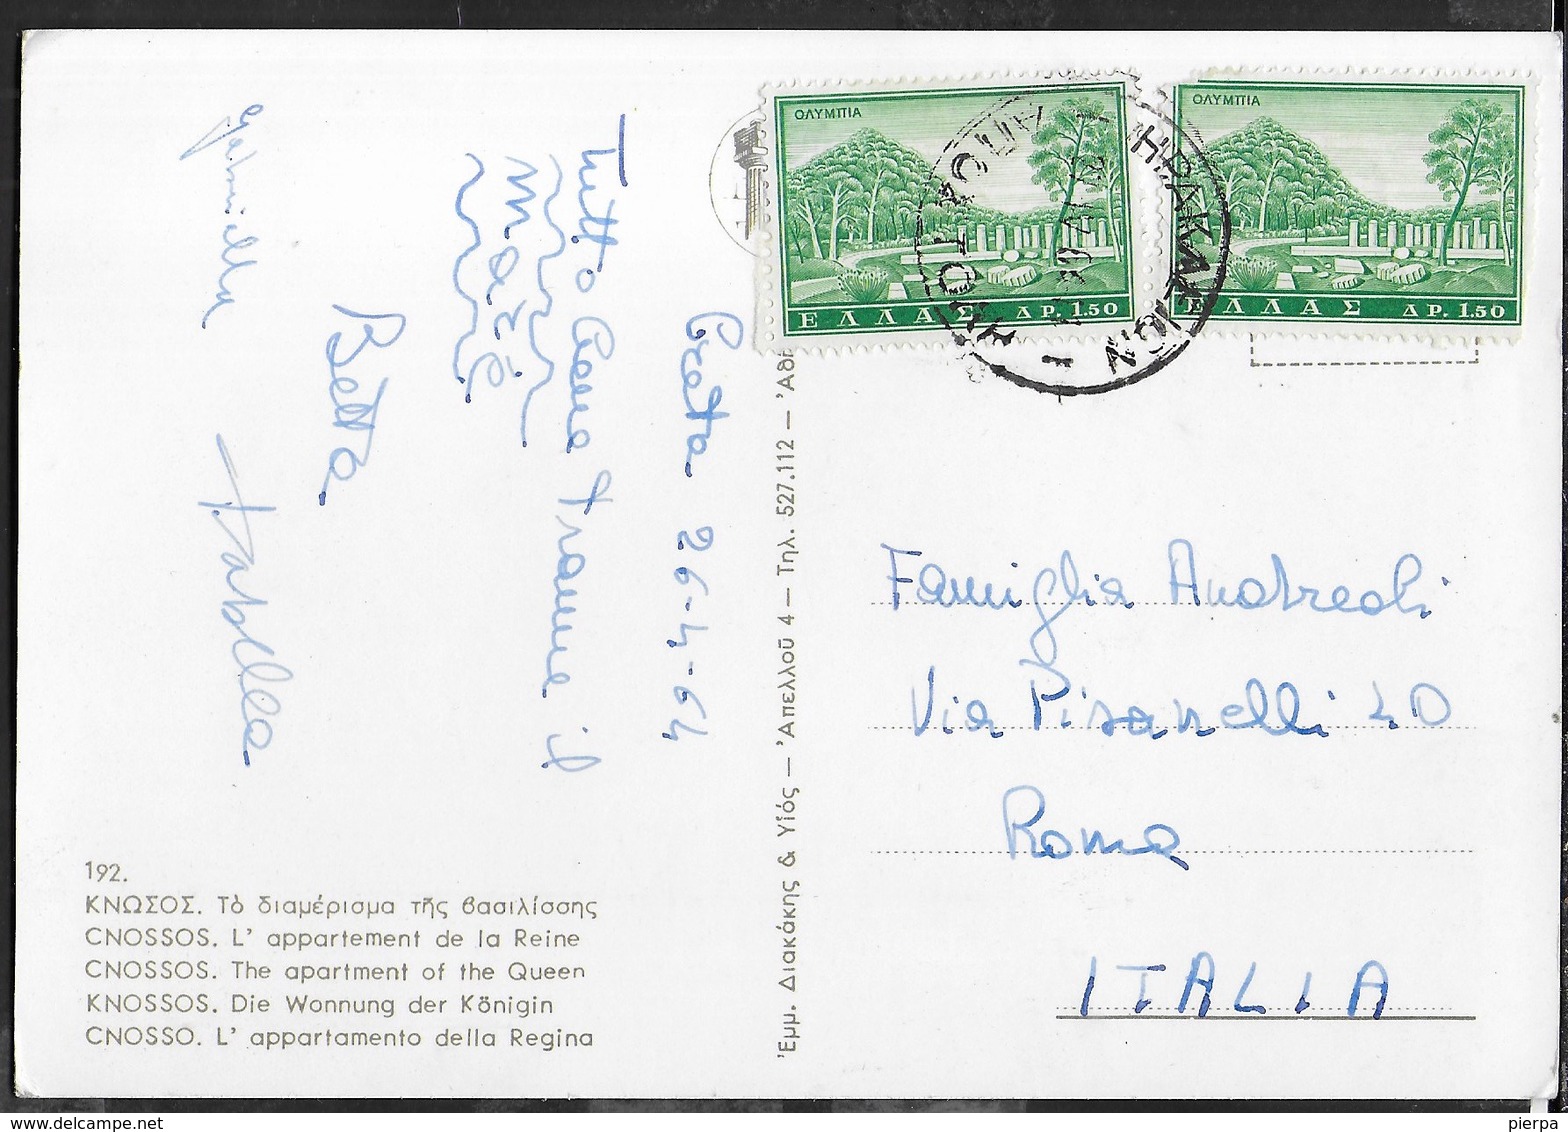 ΟΛΥΜΠΙΑ
ΕΛΛΑΣ ΔΡ. 1.50
ΟΛΥΜΠΙΑ
ΕΛΛΑΣ ΔΡ. 1.50
ΗΡΑΚΛΕΙΟΝ
Creta 26-4-64
Tutto bene tranne il
maré
Betta
Isabella
Famiglia Andreoli
Via Pisanelli 40
Roma
ITALIA
192.
ΚΝΩΣΟΣ. Τὸ διαμέρισμα τῆς βασιλίσσης
CNOSSOS. L' appartement de la Reine
CNOSSOS. The apartment of the Queen
KNOSSOS. Die Wonnung der Königin
CNOSSO. L' appartamento della Regina
Ἐμμ. Διακάκης & Υἱός — Ἀπελλοῦ 4 — Τηλ. 527.112 — Ἀθ
pierpa
www.delcampe.net